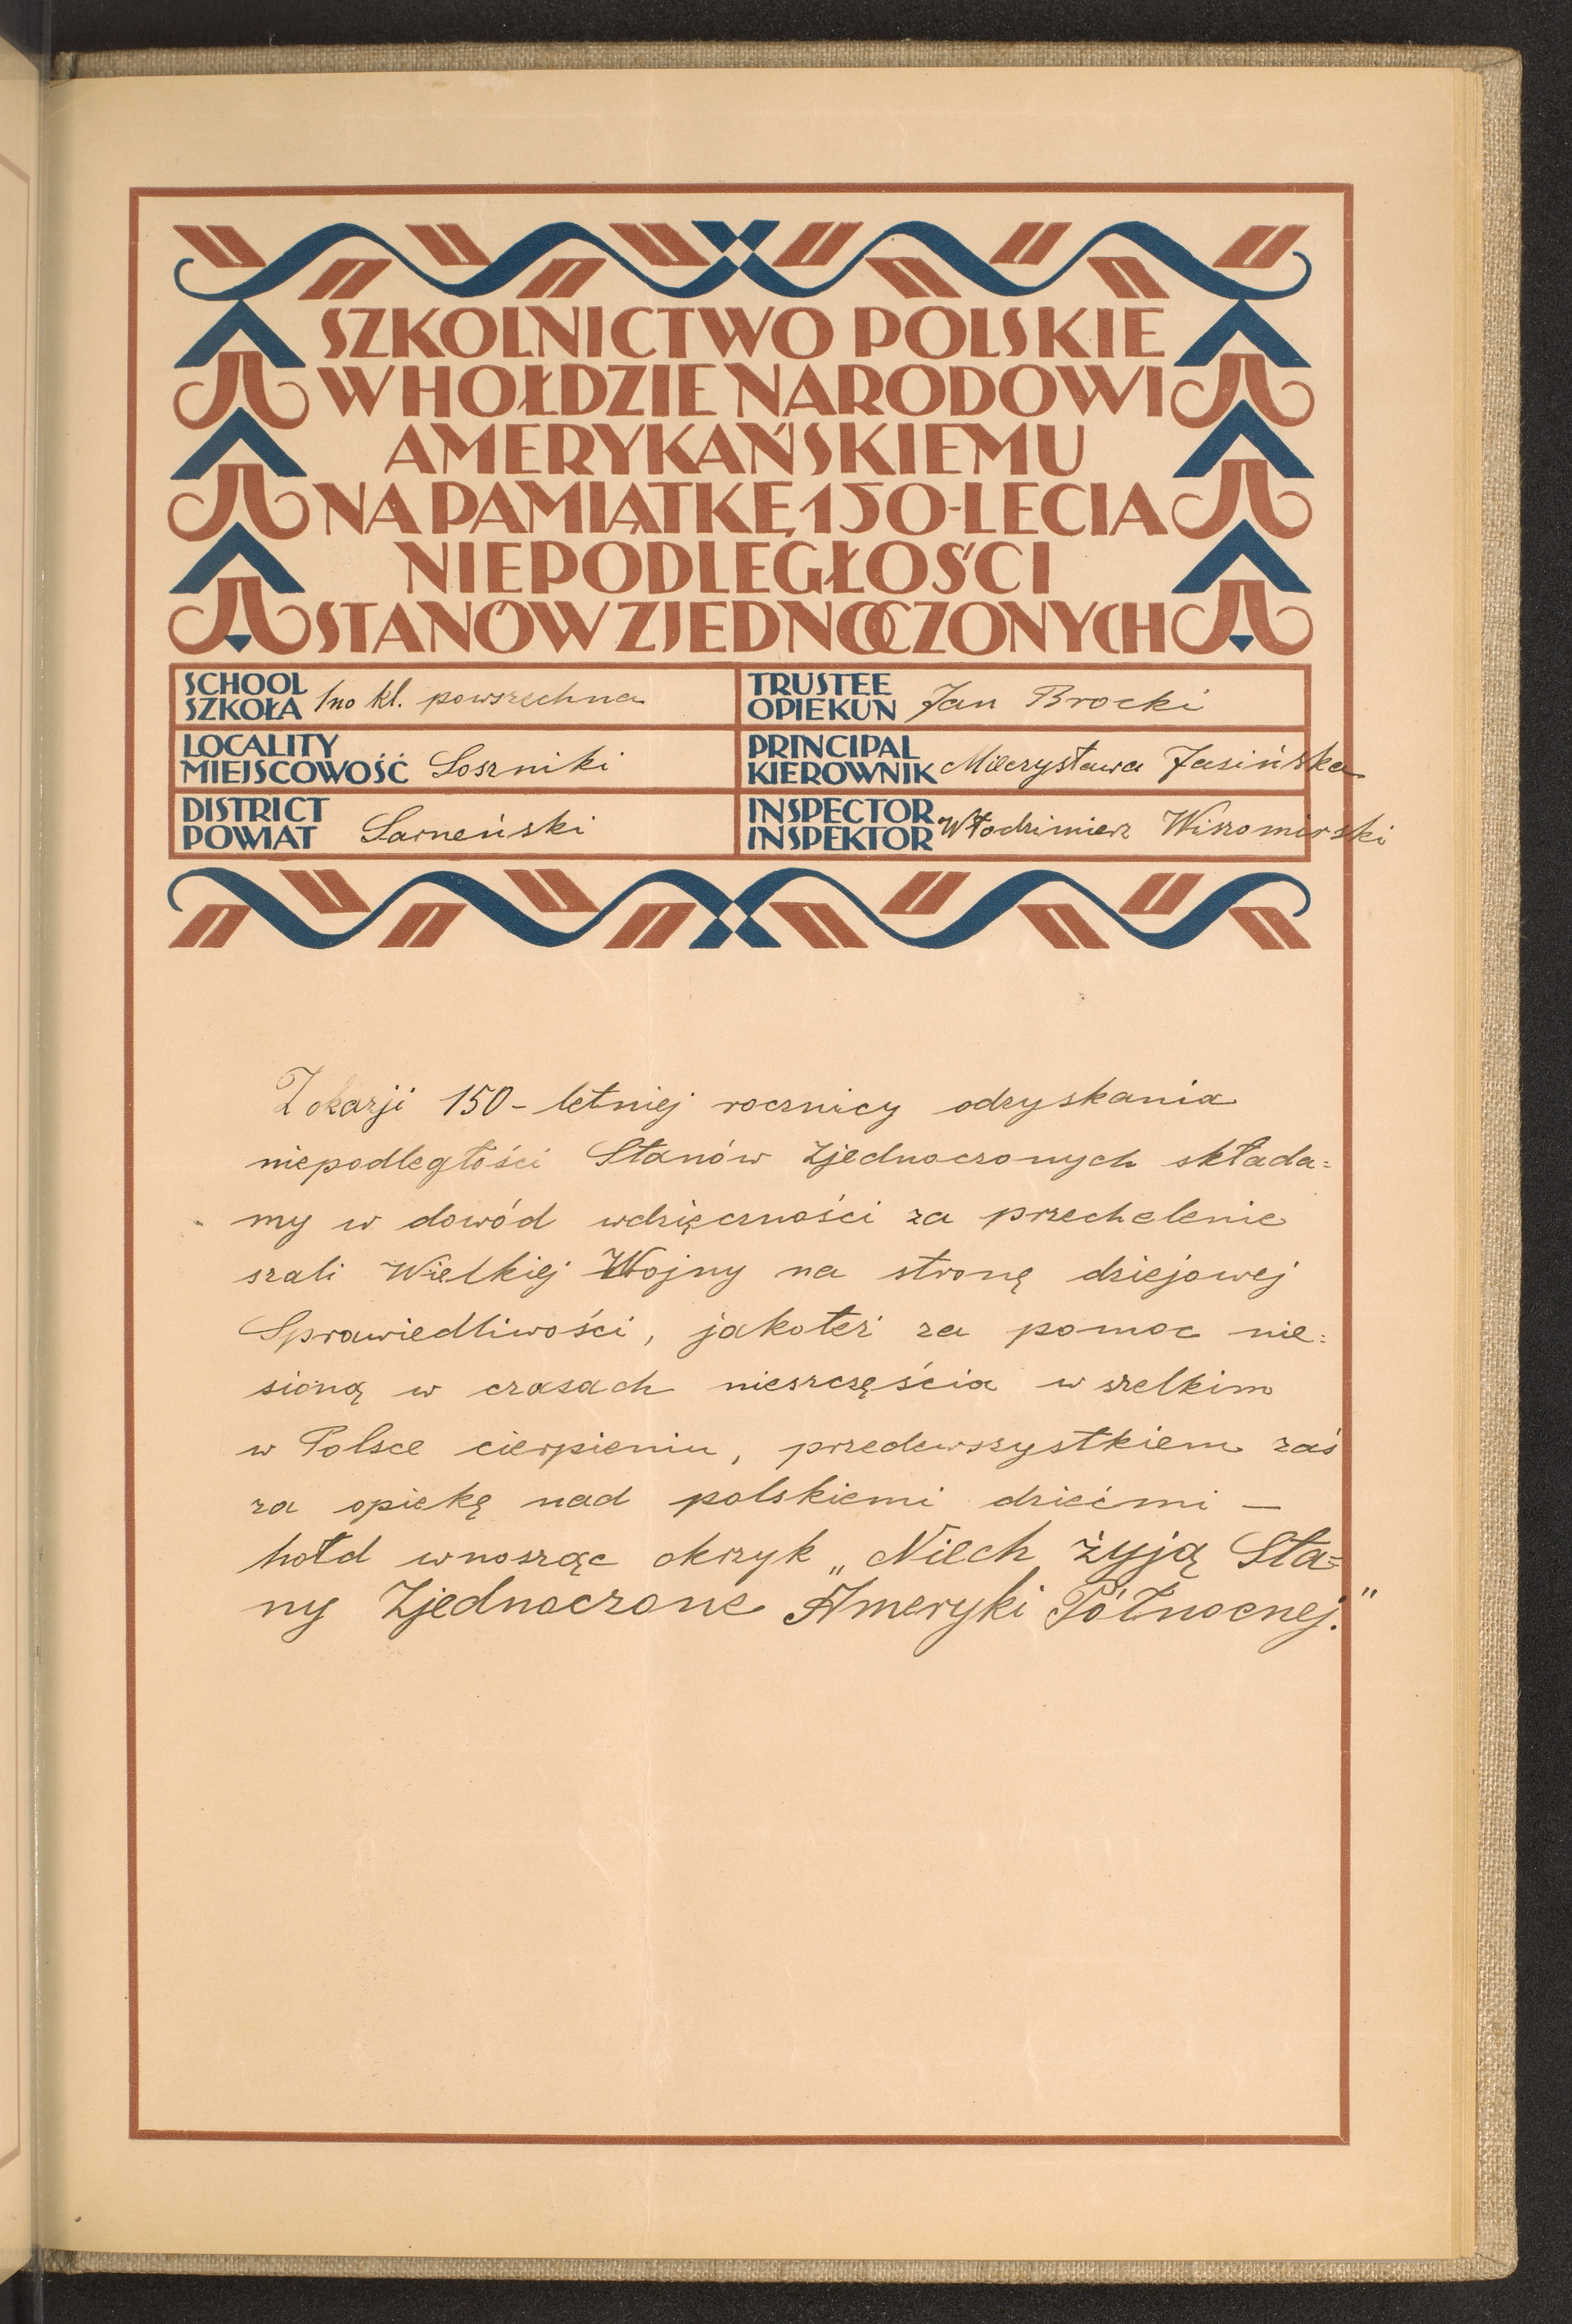 SZKOLNICTWO POLSKIE
W HOŁDZIE NARODOWI
AMERYKAŃSKIEMU
NA PAMIĄTKĘ 150-LECIA
NIEPODLEGŁOŚCI
STANÓW ZJEDNOCZONYCH
SCHOOL
SZKOŁA 1no kl. powszechna
TRUSTEE
OPIEKUN Jan Brocki
LOCALITY
MIEJSCOWOŚĆ Soszniki
PRINCIPAL
KIEROWNIK Mieczysława Jasińska
DISTRICT
POWIAT Sarneński
INSPECTOR
INSPEKTOR Włodzimierz Wiszomirski
Z okazji 150-letniej rocznicy odzyskania
niepodległości Stanów Zjednoczonych składa=
my w dowód wdzięczności za przechelenie
szali Wielkiej Wojny na stronę dziejowej
Sprawiedliwości, jakoteż za pomoc nie=
sioną w czasach nieszczęścia w szelkim
w Polsce cierpieniu, przedewszystkiem zaś
za opiekę nad polskiemi dziećmi —
hołd wnosząc okrzyk „Niech żyją Sta=
ny Zjednoczone Ameryki Północnej."